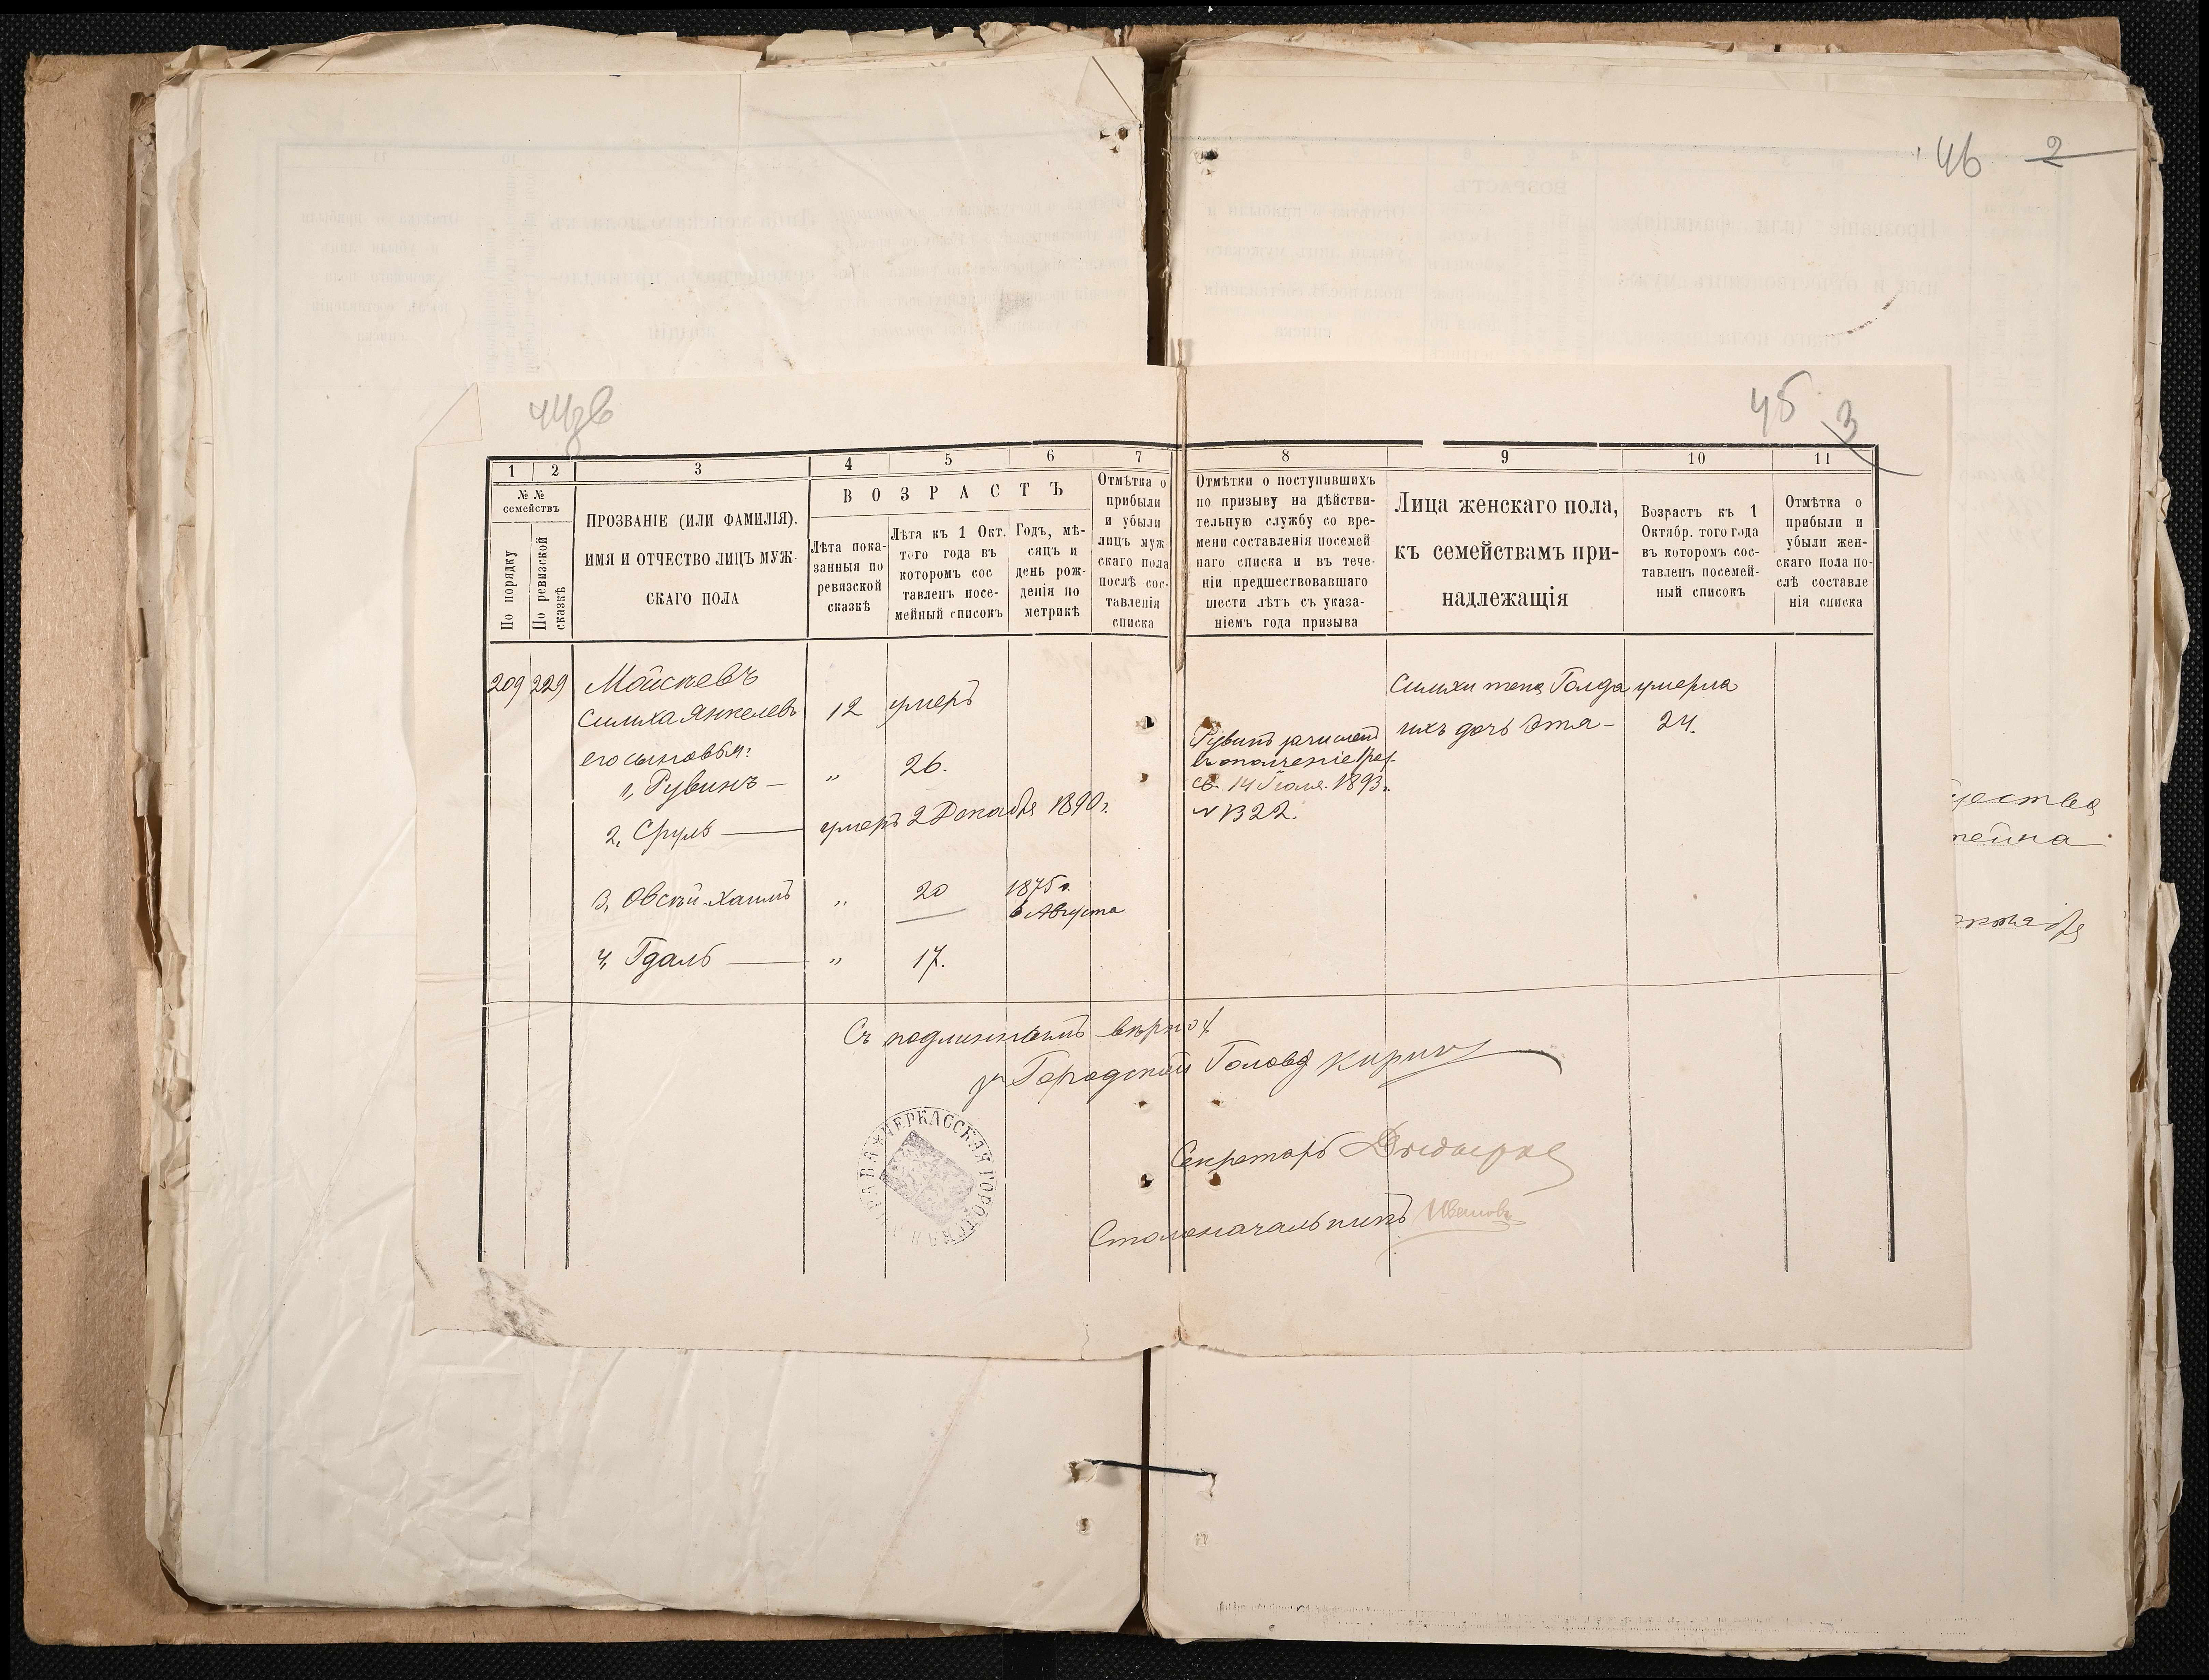 46 2
44зв
45 3
1 2 3 4 5 6 7 8 9 10 11
№ №
семействъ
По порядку
По ревизской
сказкѣ
ПРОЗВАНІЕ (ИЛИ ФАМИЛІЯ),
ИМЯ И ОТЧЕСТВО ЛИЦЪ МУЖ-
СКАГО ПОЛА
ВОЗРАСТЪ
Лѣта пока-
занныя по
ревизской
сказкѣ
Лѣта къ 1 Окт.
того года въ
которомъ сос
тавленъ посе-
мейный списокъ
Годъ, мѣ-
сяцъ и
день рож-
денія по
метрикѣ
Отмѣтка о
прибыли
и убыли
лицъ муж
скаго пола
послѣ сос-
тавленія
списка
Отмѣтки о поступившихъ
по призыву на дѣйстви-
тельную службу со вре-
мени составленія посемей
наго списка и въ тече-
ніи предшествовавшаго
шести лѣтъ съ указа-
ніемъ года призыва
Лица женскаго пола,
къ семействамъ при-
надлежащія
Возрастъ къ 1
Октябр. того года
въ которомъ сос-
тавленъ посемей-
ный списокъ
Отмѣтка о
прибыли и
убыли жен-
скаго пола по-
слѣ составле
нія списка
209 229 Мойскевъ
Симха Янкелевъ 12 умеръ
его сыновья:
1, Рувинъ — „ 26.
2, Сруль — умеръ 2 Декабря 1890 г.
3, Овсѣй-Хаимъ „ 20 1875 г.
6 Августа
4, Гдаль — „ 17.
Рувинъ зачисленъ
въ ополченіе
св. 14 Іюля 1893 г.
№ 1322.
Симхи жена Голда умерла
ихъ дочь Эта - 24.
Съ подлиннымъ вѣрно:
за Городской Голова
Секретарь
Столоначальникъ Иванов
ЧЕРКАССКАЯ ГОРОДСКАЯ УПРАВА